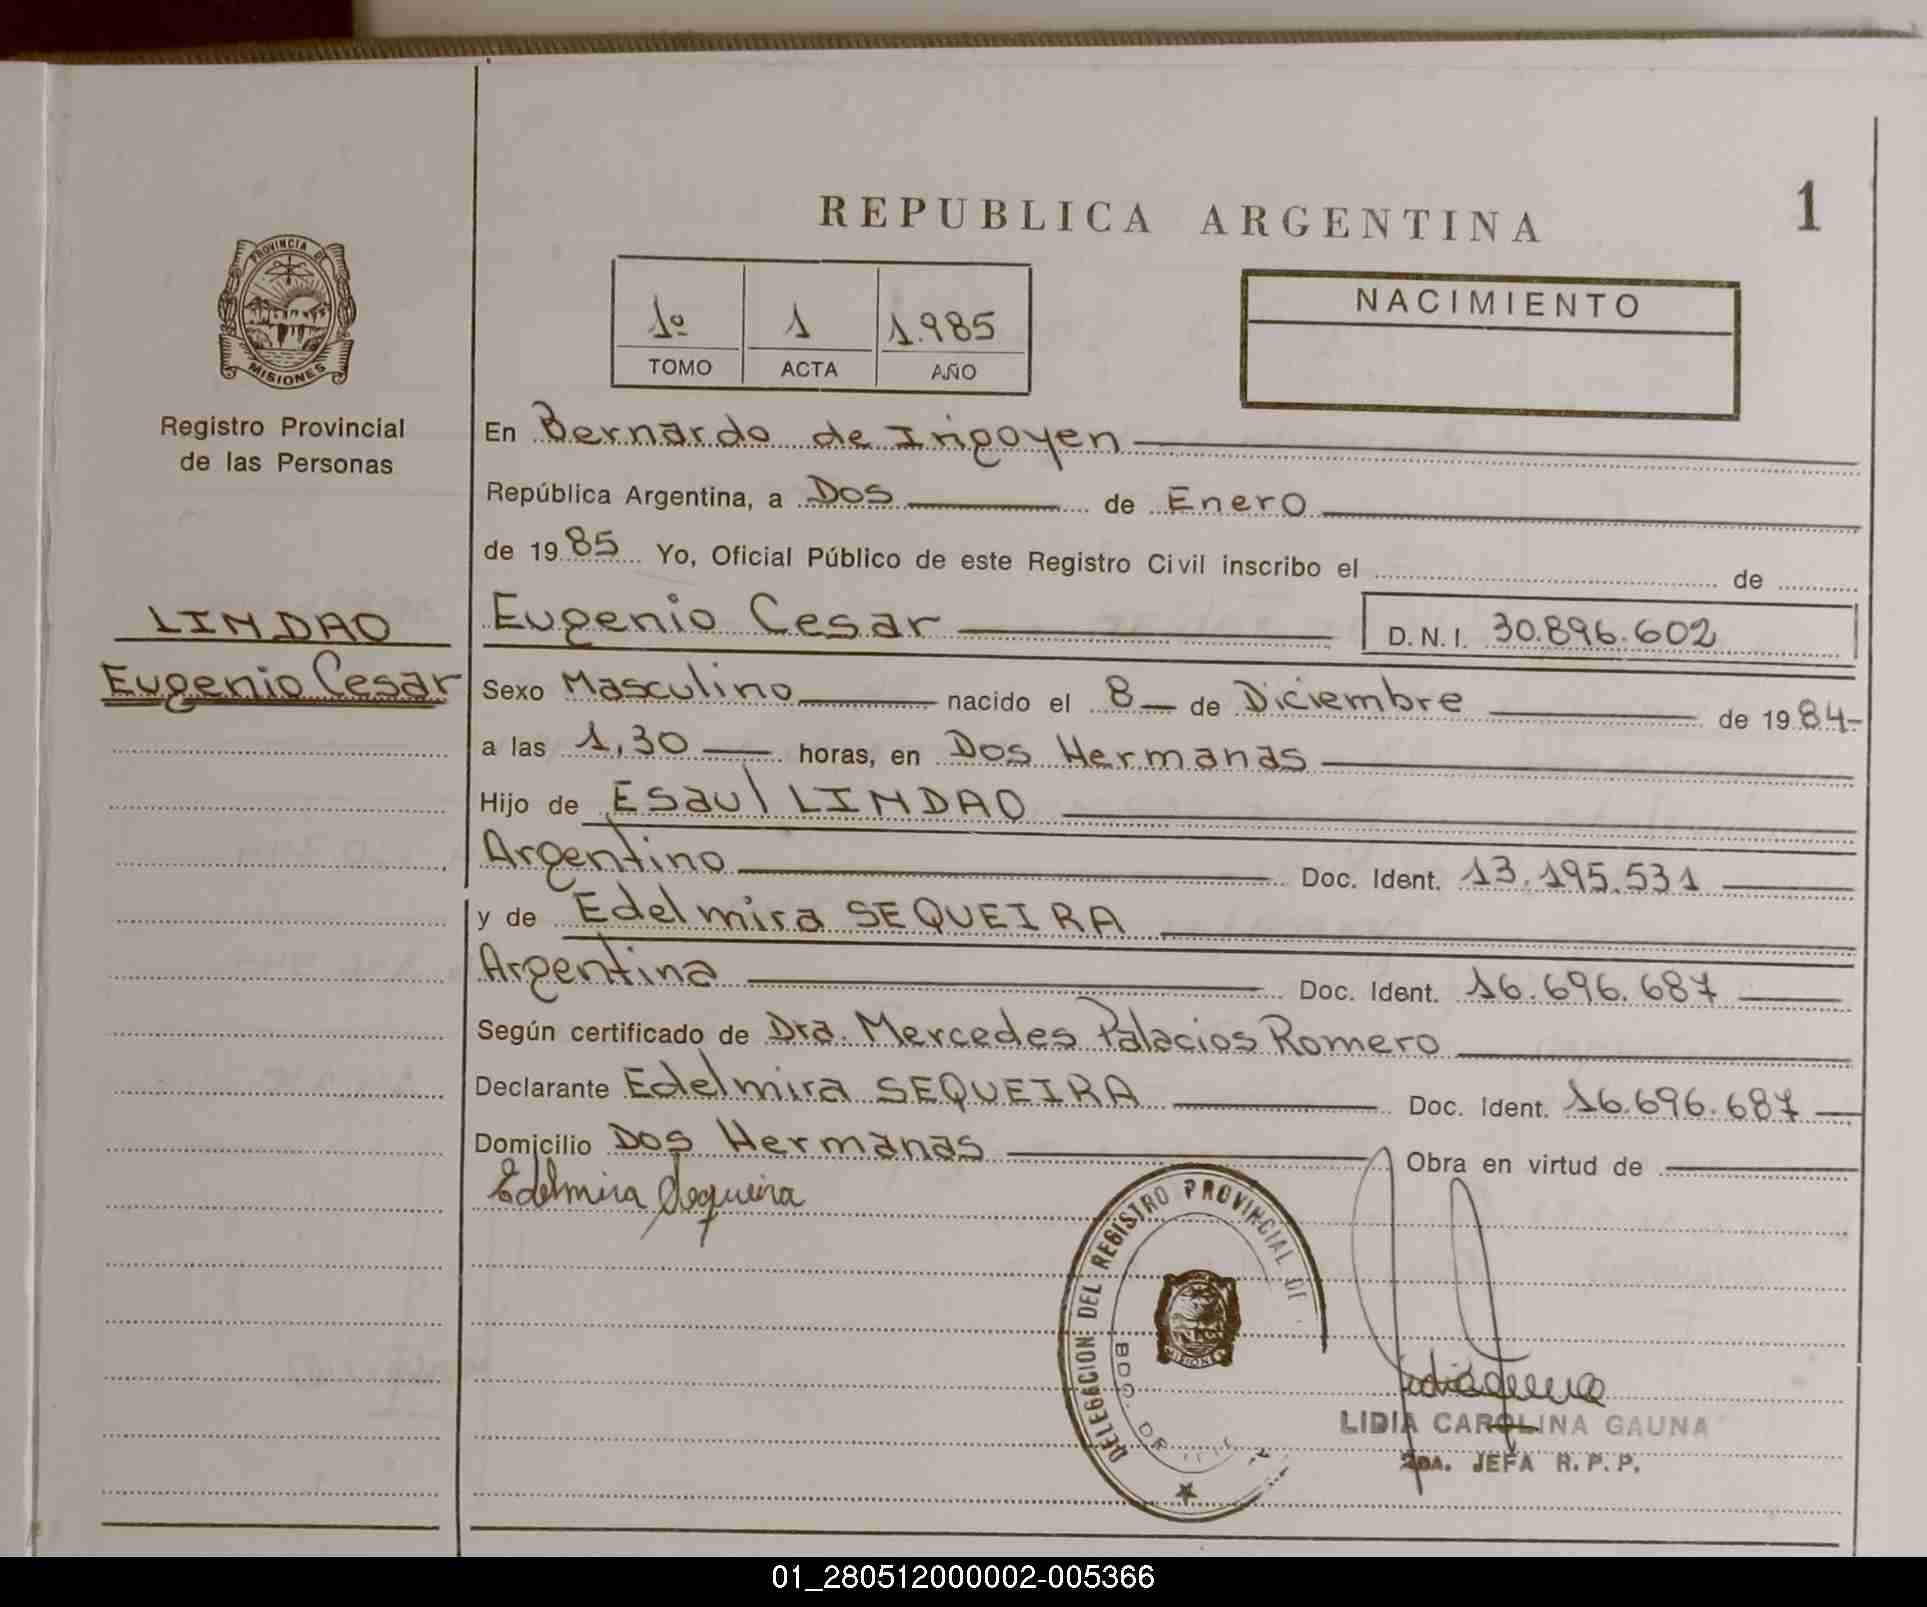 REPUBLICA ARGENTINA
1
PROVINCIA DE
MISIONES
Registro Provincial
de las Personas
LINDAO
Eugenio Cesar
1º 1 1.985
TOMO ACTA AÑO
NACIMIENTO
En Bernardo de Irigoyen
República Argentina, a Dos de Enero
de 1985 Yo, Oficial Público de este Registro Civil inscribo el de
Eugenio Cesar D.N.I. 30.896.602
Sexo Masculino nacido el 8 de Diciembre de 1984
a las 1,30 horas, en Dos Hermanas
Hijo de Esaul LINDAO
Argentino Doc. Ident. 13.195.531
y de Edelmira SEQUEIRA
Argentina Doc. Ident. 16.696.687
Según certificado de Dra. Mercedes Palacios Romero
Declarante Edelmira SEQUEIRA Doc. Ident. 16.696.687
Domicilio Dos Hermanas Obra en virtud de
Edelmira Sequeira
DELEGACION DEL REGISTRO PROVINCIAL DE
BDO. DE
MISIONES
LIDIA CAROLINA GAUNA
2DA. JEFA R.P.P.
01_280512000002-005366